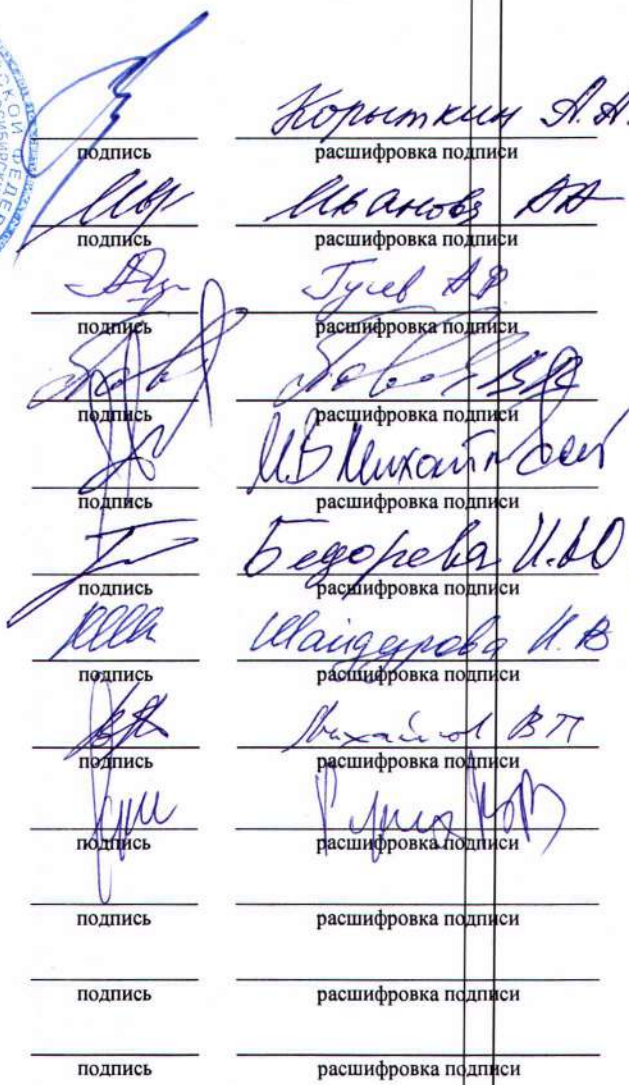 СКОЙ ФЕДЕР
Корыткин А.А.
подпись расшифровка подписи
Иванова АА
подпись расшифровка подписи
Гусев АФ
подпись расшифровка подписи
подпись расшифровка подписи
МВ
подпись расшифровка подписи
Бедорева И.Ю
подпись расшифровка подписи
Шайдурова И.В
подпись расшифровка подписи
Михайлов ВП
подпись расшифровка подписи
подпись расшифровка подписи
подпись расшифровка подписи
подпись расшифровка подписи
подпись расшифровка подписи